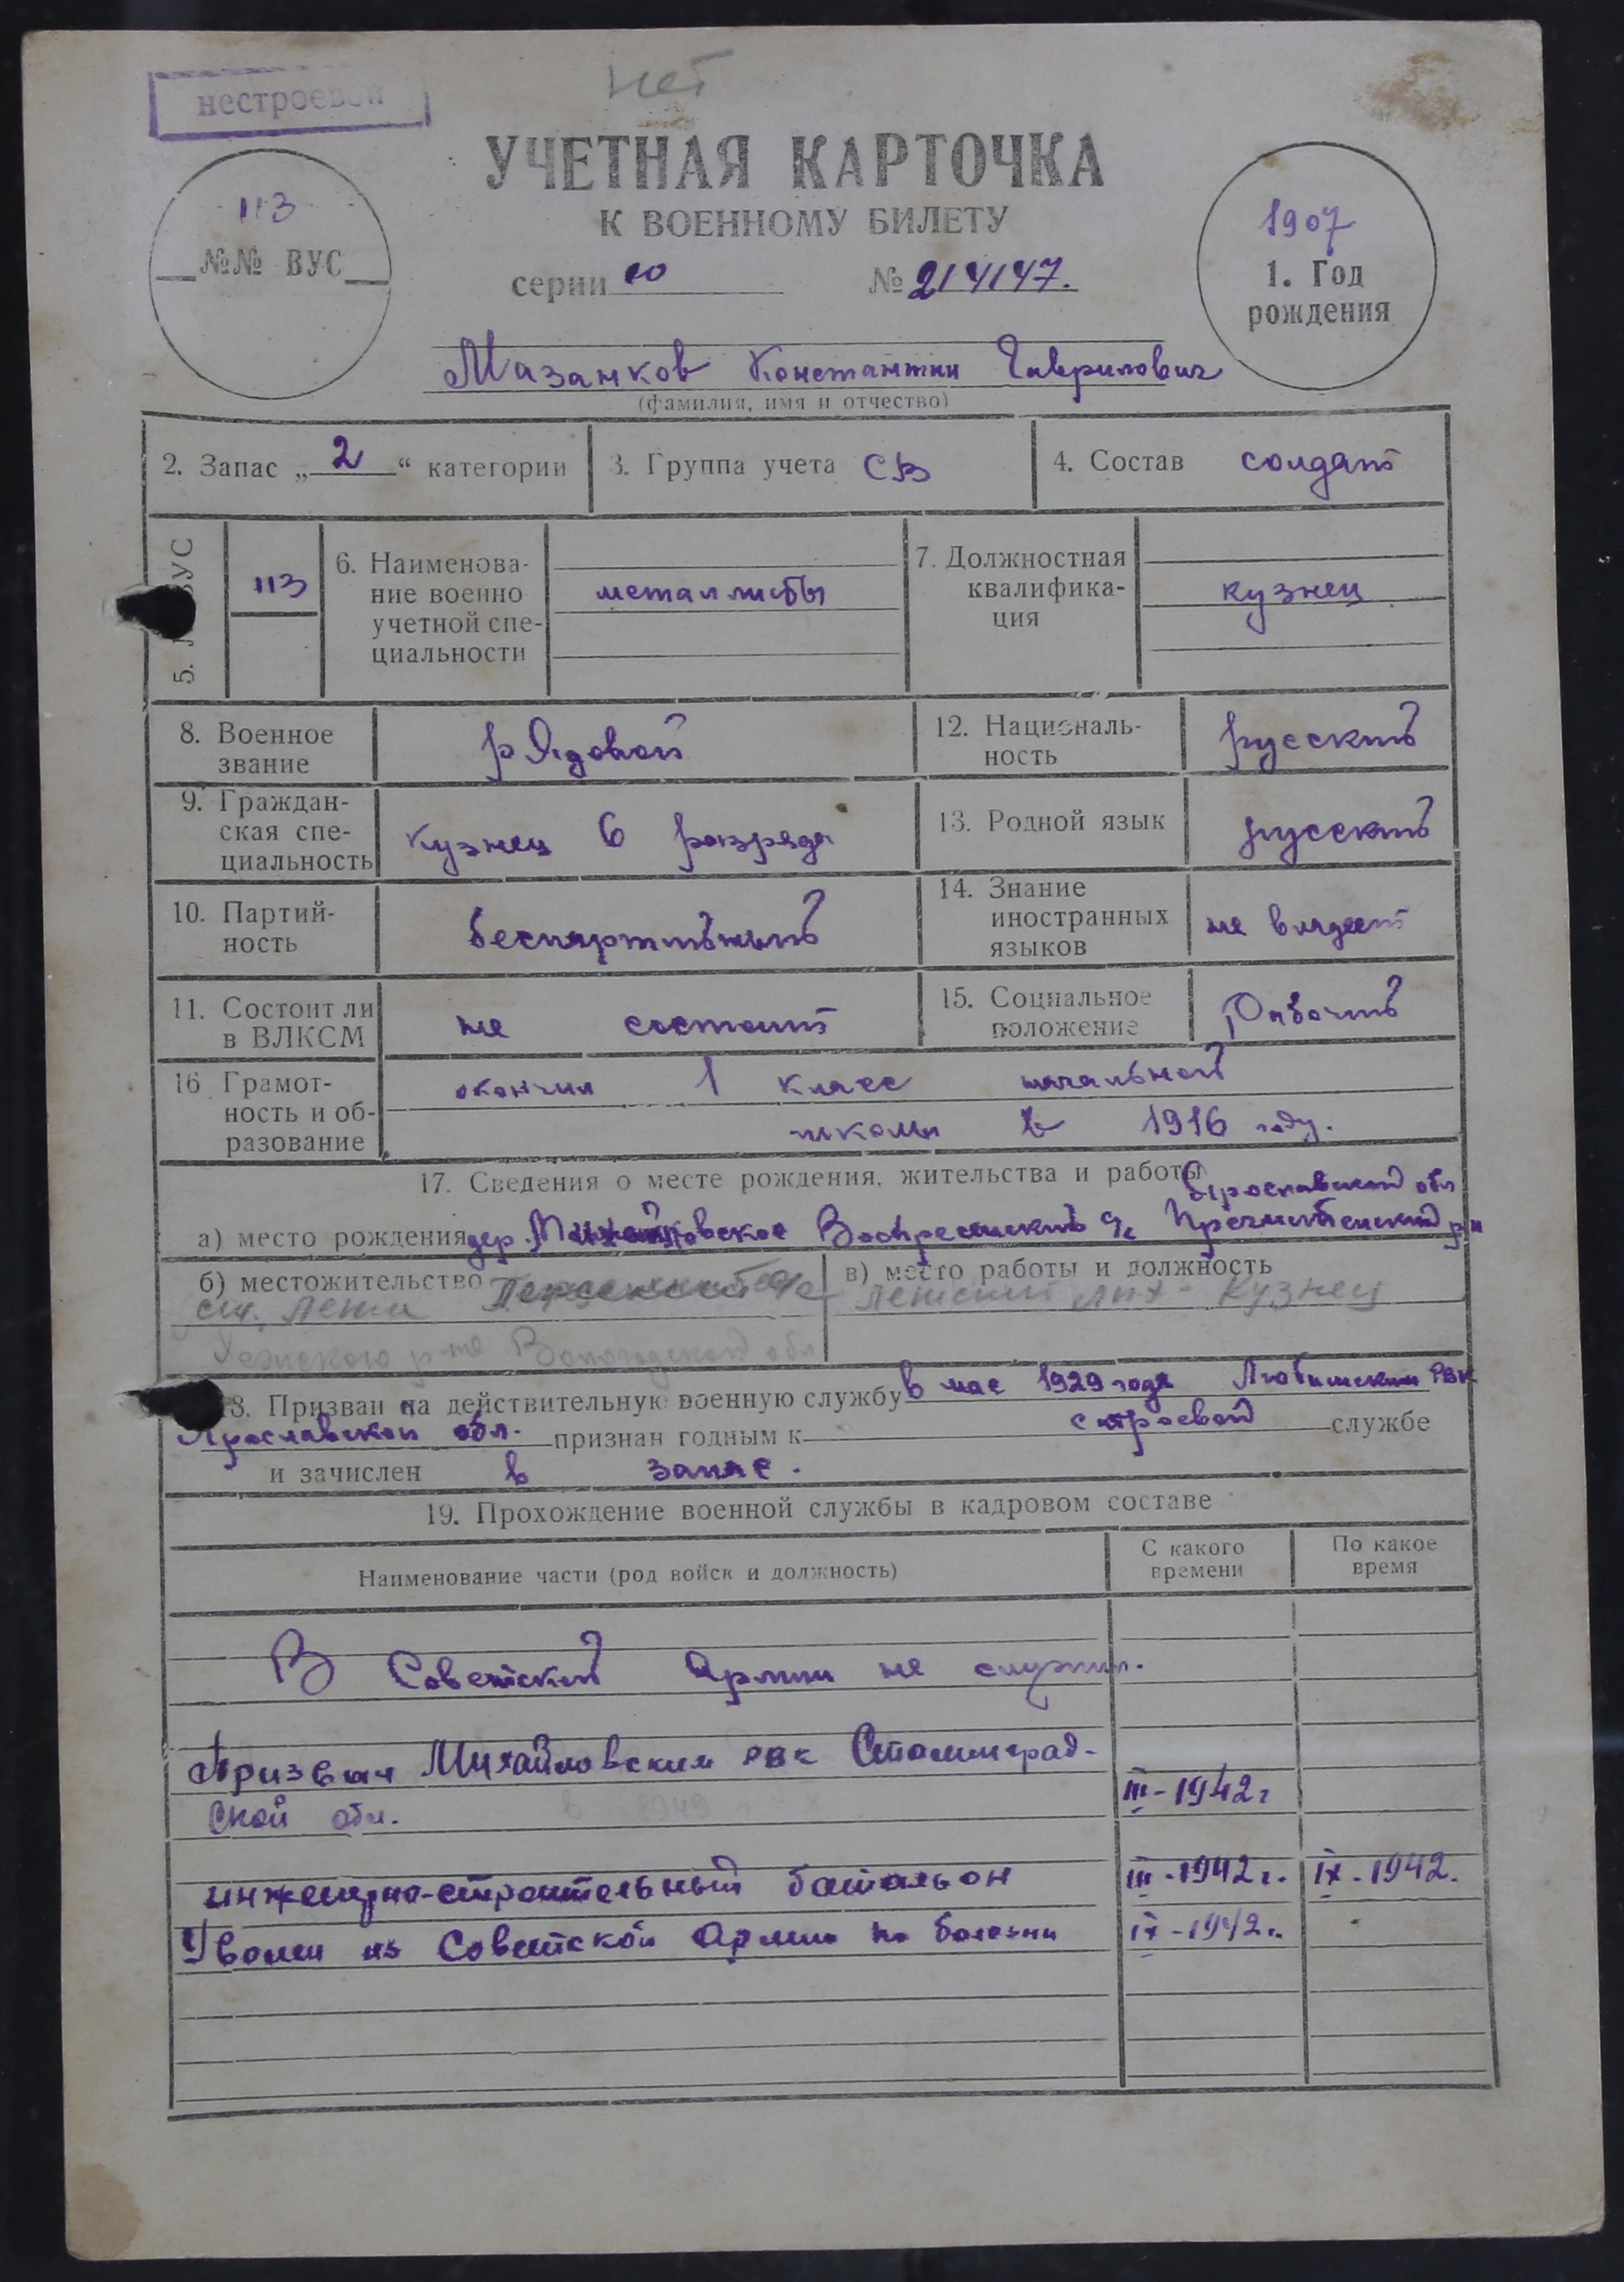 нет
нестроевой
УЧЕТНАЯ КАРТОЧКА
К ВОЕННОМУ БИЛЕТУ
113
№№ ВУС
серии ю № 214147.
1907
1. Год
рождения
Мазанков Константин Гаврилович
(фамилия, имя и отчество)
2. Запас „2“ категории
3. Группа учета СВ
4. Состав солдат
5. ВУС
113
6. Наименова-
ние военно
учетной спе-
циальности
металлисты
7. Должностная
квалифика-
ция
кузнец
8. Военное
звание
рядовой
12. Националь-
ность
русский
9. Граждан-
ская спе-
циальность
кузнец 6 разряда
13. Родной язык
русский
10. Партий-
ность
беспартийный
14. Знание
иностранных
языков
не владеет
11. Состоит ли
в ВЛКСМ
не состоит
15. Социальное
положение
Рабочий
16 Грамот-
ность и об-
разование
окончил 1 класс начальной
школы в 1916 году.
17. Сведения о месте рождения, жительства и работы
Ярославской обл
а) место рождения дер. Воскресенский с/с Пречистенский р-н
б) местожительство
ст. Лежа с/с
р-на Вологодской обл
в) место работы и должность
Лежский лпх - Кузнец
18. Призван на действительную военную службу в мае 1929 года Любимским РВК
Ярославской обл. признан годным к строевой службе
и зачислен в запас.
19. Прохождение военной службы в кадровом составе
Наименование части (род войск и должность)
С какого
времени
По какое
время
В Советской Армии не служил.
Призван Михайловским РВК Сталинград-
ской обл.
III-1942г
инженерно-строительный батальон III-1942г. IX-1942.
Уволен из Советской Армии по болезни IX-1942г.